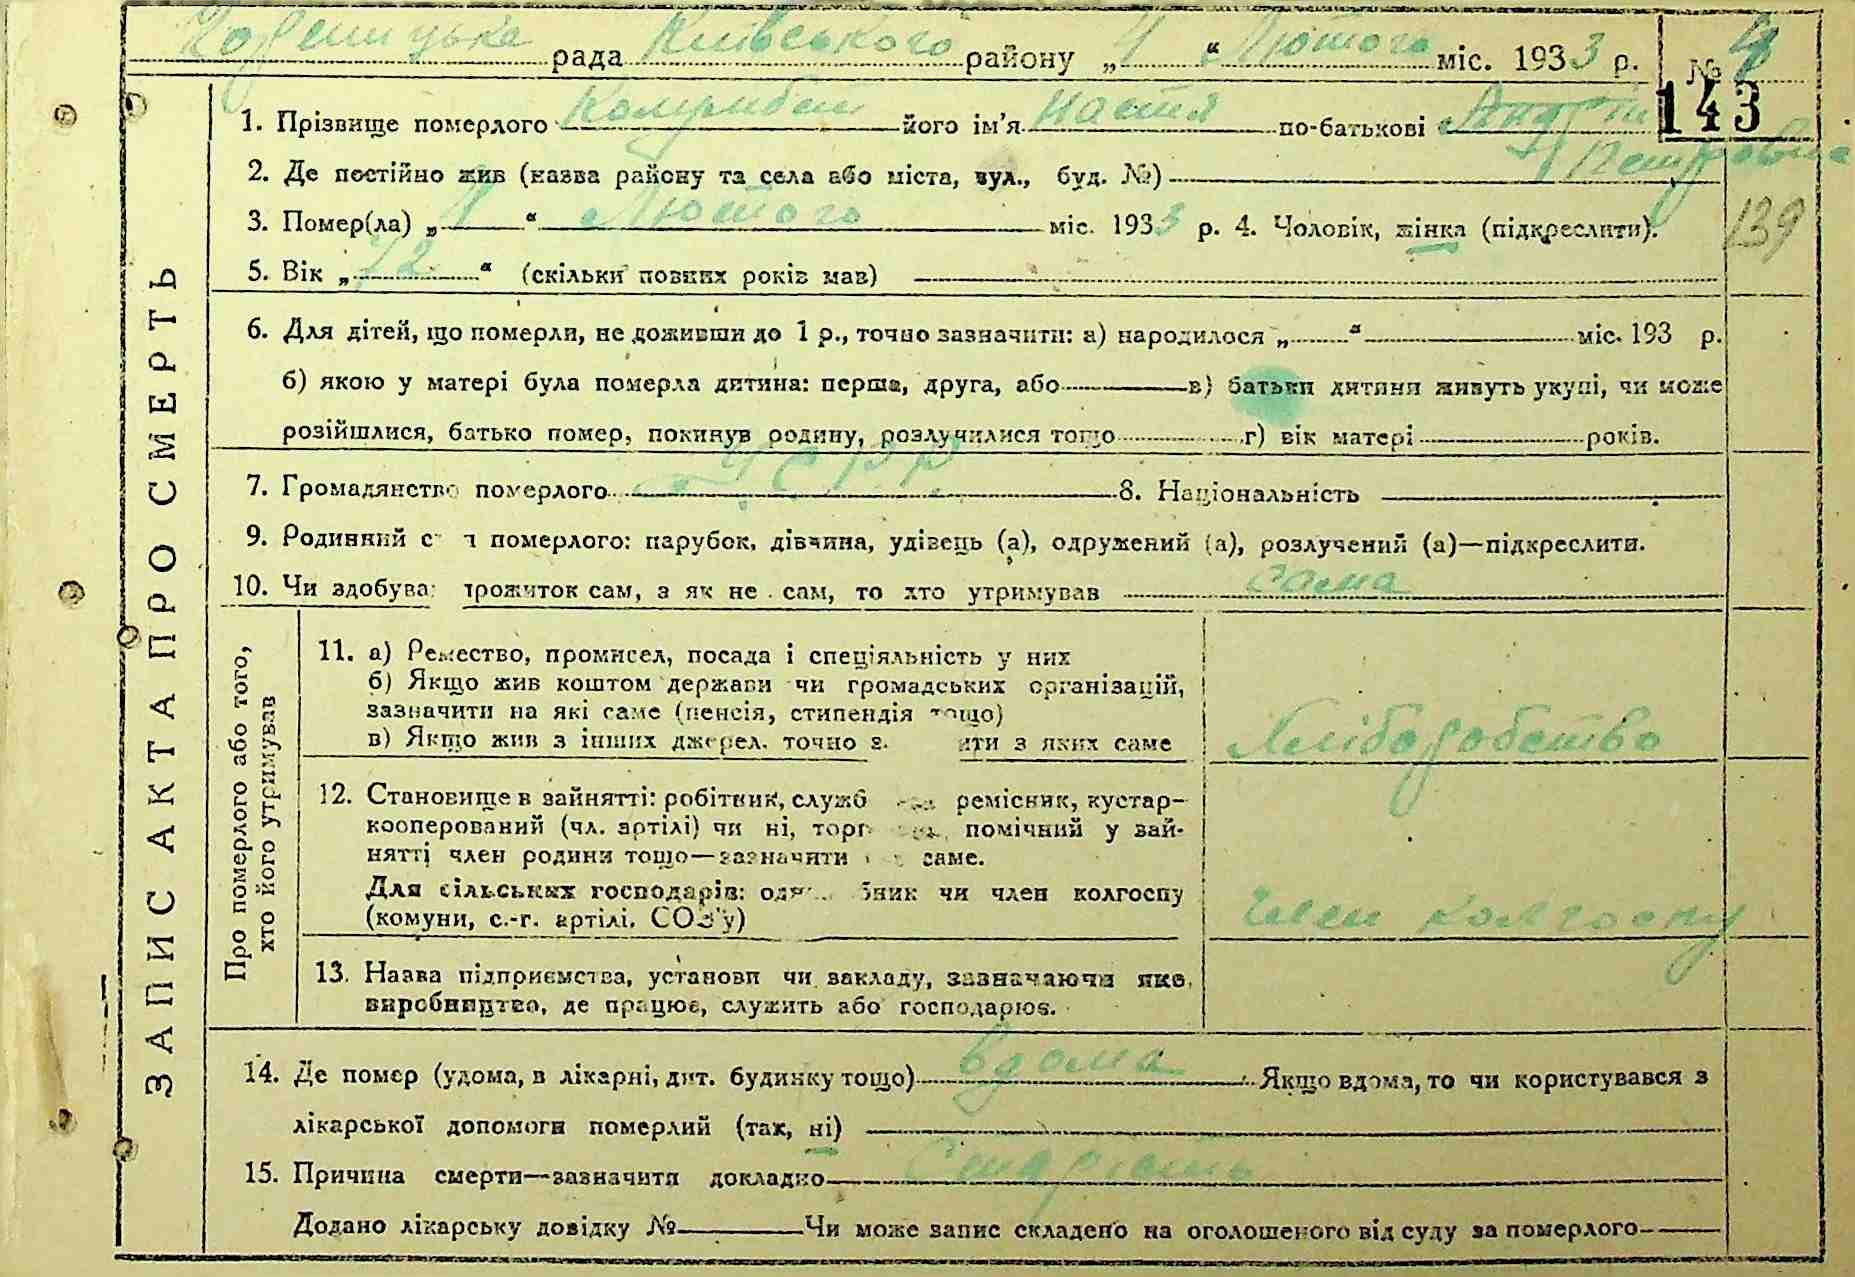 рада Київського району „ 4 “ Лютого міс. 1933 р. № 4
143
1. Прізвище померлого його ім’я Настя по-батькові Петровна
2. Де постійно жив (назва району та села або міста, вул., буд. №)
139
3. Помер(ла) „ “ Лютого міс. 1933 р. 4. Чоловік, жінка (підкреслити).
5. Вік „ 72 “ (скільки повних років мав)
6. Для дітей, що померли, не доживши до 1 р., точно зазначити: а) народилося „ “ міс. 193 р.
б) якою у матері була померла дитина: перша, друга, або в) батьки дитини живуть укупі, чи може
розійшлися, батько помер, покинув родину, розлучилися тощо г) вік матері років.
7. Громадянство померлого У.С.Р.Р. 8. Національність
9. Родинний с н померлого: парубок, дівчина, удівець (а), одружений (а), розлучений (а)—підкреслити.
10. Чи здобува прожиток сам, а як не сам, то хто утримував сама
ЗАПИС АКТА ПРО СМЕРТЬ
Про померлого або того,
хто його утримував
11. а) Ремество, промисел, посада і спеціяльність у них
б) Якщо жив коштом держави чи громадських організацій,
зазначити на які саме (пенсія, стипендія тощо)
в) Якщо жив з інших джерел, точно з ити з яких саме
Хліборобство
12. Становище в зайнятті: робітник, служб ремісник, кустар-
кооперований (чл. артілі) чи ні, торг помічний у зай-
нятті член родини тощо—зазначити саме.
Для сільських господарів: одн бник чи член колгоспу
(комуни, с.-г. артілі, СОЗ’у)
Член колгоспу
13. Назва підприємства, установи чи закладу, зазначаючи яке
виробництво, де працює, служить або господарює.
14. Де помер (удома, в лікарні, дит. будинку тощо) вдома Якщо вдома, то чи користувався з
лікарської допомоги померлий (так, ні)
15. Причина смерти—зазначити докладно Старість
Додано лікарську довідку № Чи може запис складено на оголошеного від суду за померлого